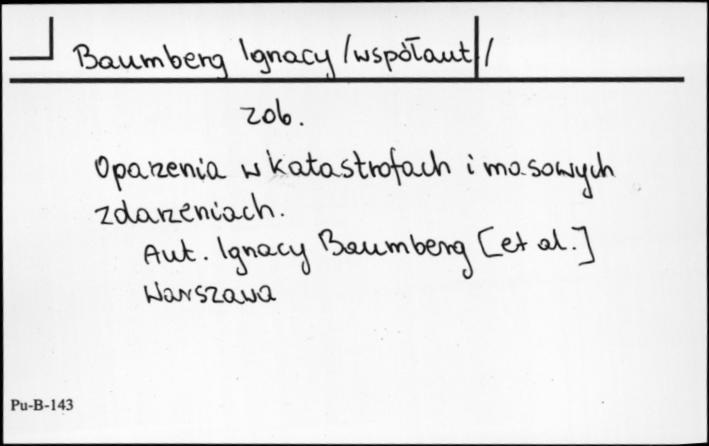 Baumberg Ignacy /współaut/
zob.
Oparzenia w katastrofach i masowych
zdarzeniach.
Aut. Ignacy Baumberg [et al.]
Warszawa
Pu-B-143